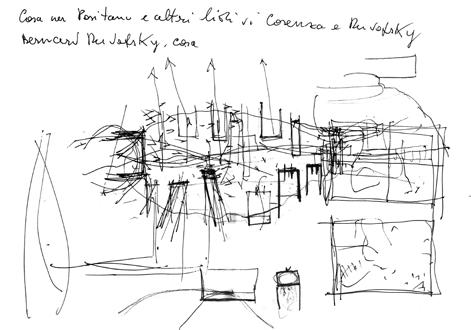 Casa per Positano e altri lidi di Cosenza e Rudofsky
Bernard Rudofsky, casa